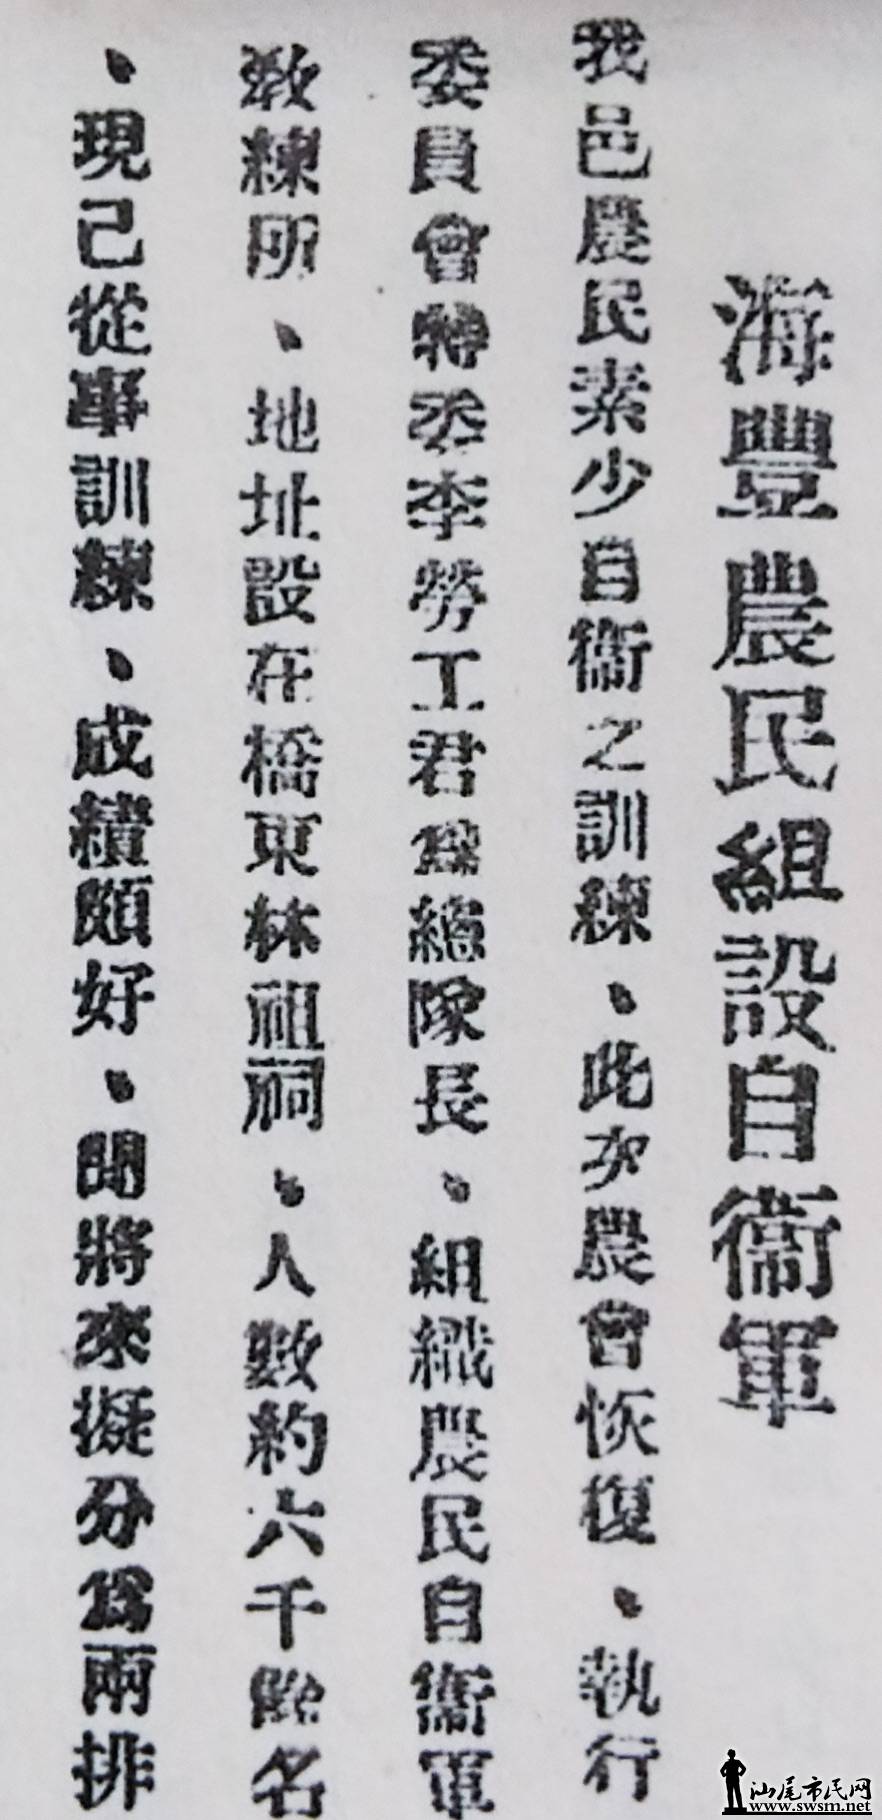 海豐農民組設自衞軍
我邑農民素少自衞之訓練、此次農會恢復、執行
委員會特委李勞工君為總隊長、組織農民自衞軍
教練所、地址設在橋東林祖祠、人數約六千餘名
、現已從事訓練、成績頗好、聞將來擬分為兩排
汕尾市民网
www.swsm.net